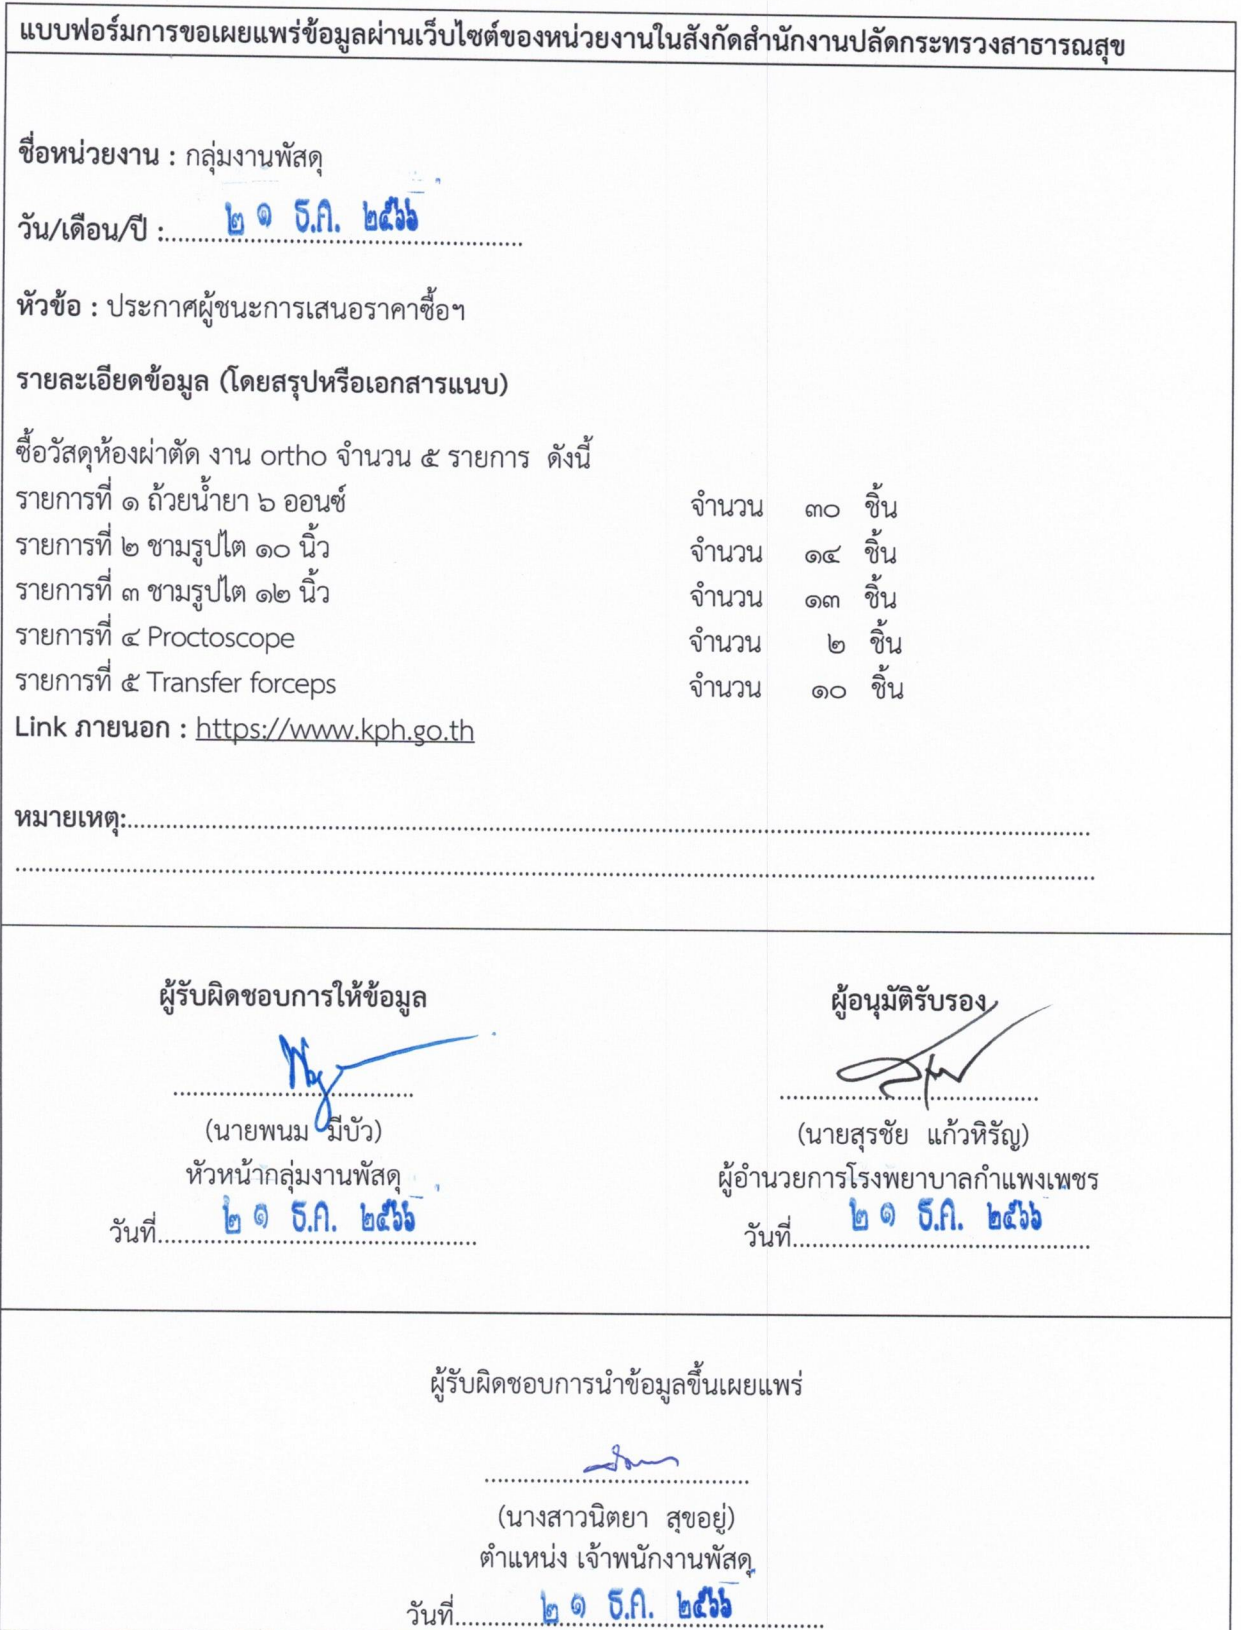 แบบฟอร์มการขอเผยแพร่ข้อมูลผ่านเว็บไซต์ของหน่วยงานในสังกัดสำนักงานปลัดกระทรวงสาธารณสุข
ชื่อหน่วยงาน : กลุ่มงานพัสดุ
วัน/เดือน/ปี :.....๒ ๑ ธ.ค. ๒๕๖๖.....
หัวข้อ : ประกาศผู้ชนะการเสนอราคาซื้อฯ
รายละเอียดข้อมูล (โดยสรุปหรือเอกสารแนบ)
ซื้อวัสดุห้องผ่าตัด งาน ortho จำนวน ๕ รายการ ดังนี้
รายการที่ ๑ ถ้วยน้ำยา ๖ ออนซ์ จำนวน ๓๐ ชิ้น
รายการที่ ๒ ชามรูปไต ๑๐ นิ้ว จำนวน ๑๔ ชิ้น
รายการที่ ๓ ชามรูปไต ๑๒ นิ้ว จำนวน ๑๓ ชิ้น
รายการที่ ๔ Proctoscope จำนวน ๒ ชิ้น
รายการที่ ๕ Transfer forceps จำนวน ๑๐ ชิ้น
Link ภายนอก : https://www.kph.go.th
หมายเหตุ:..........
ผู้รับผิดชอบการให้ข้อมูล
(นายพนม มีบัว)
หัวหน้ากลุ่มงานพัสดุ
วันที่.....๒ ๑ ธ.ค. ๒๕๖๖.....
ผู้อนุมัติรับรอง
(นายสุรชัย แก้วหิรัญ)
ผู้อำนวยการโรงพยาบาลกำแพงเพชร
วันที่.....๒ ๑ ธ.ค. ๒๕๖๖.....
ผู้รับผิดชอบการนำข้อมูลขึ้นเผยแพร่
(นางสาวนิตยา สุขอยู่)
ตำแหน่ง เจ้าพนักงานพัสดุ
วันที่.....๒ ๑ ธ.ค. ๒๕๖๖.....